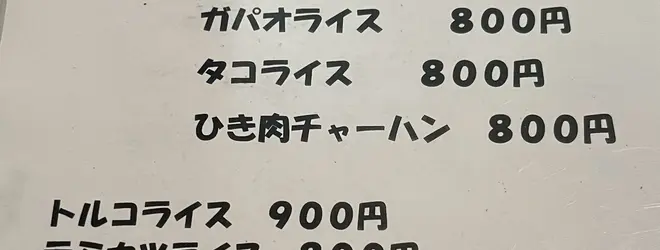 ガパオライス 800円
タコライス 800円
ひき肉チャーハン 800円
トルコライス 900円